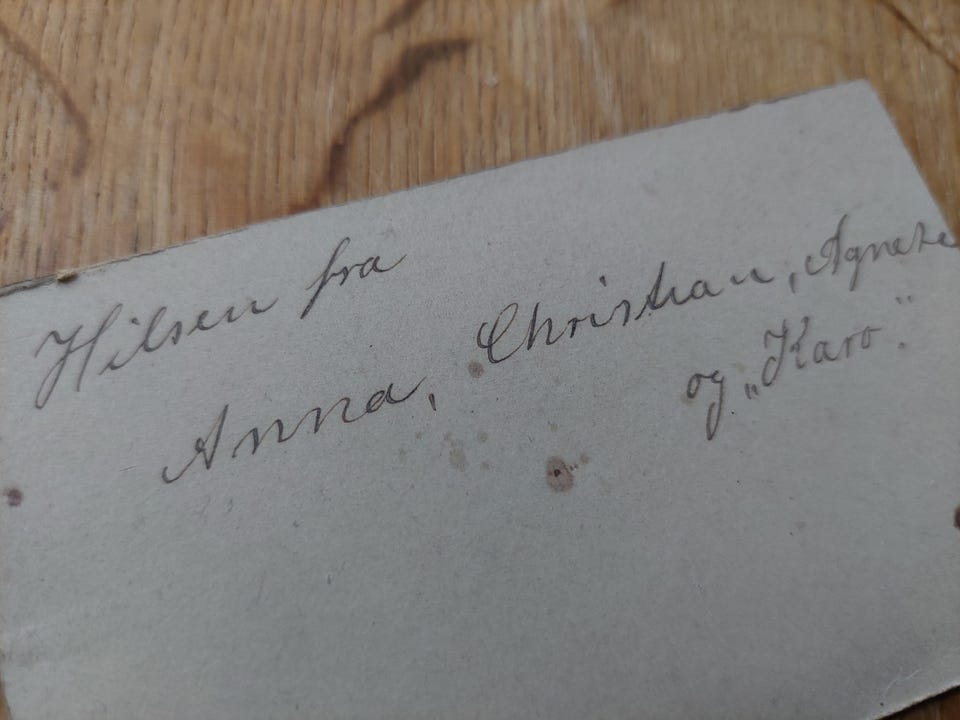 Hilsen fra
Anna, Christian, Agnete
og „Karo".